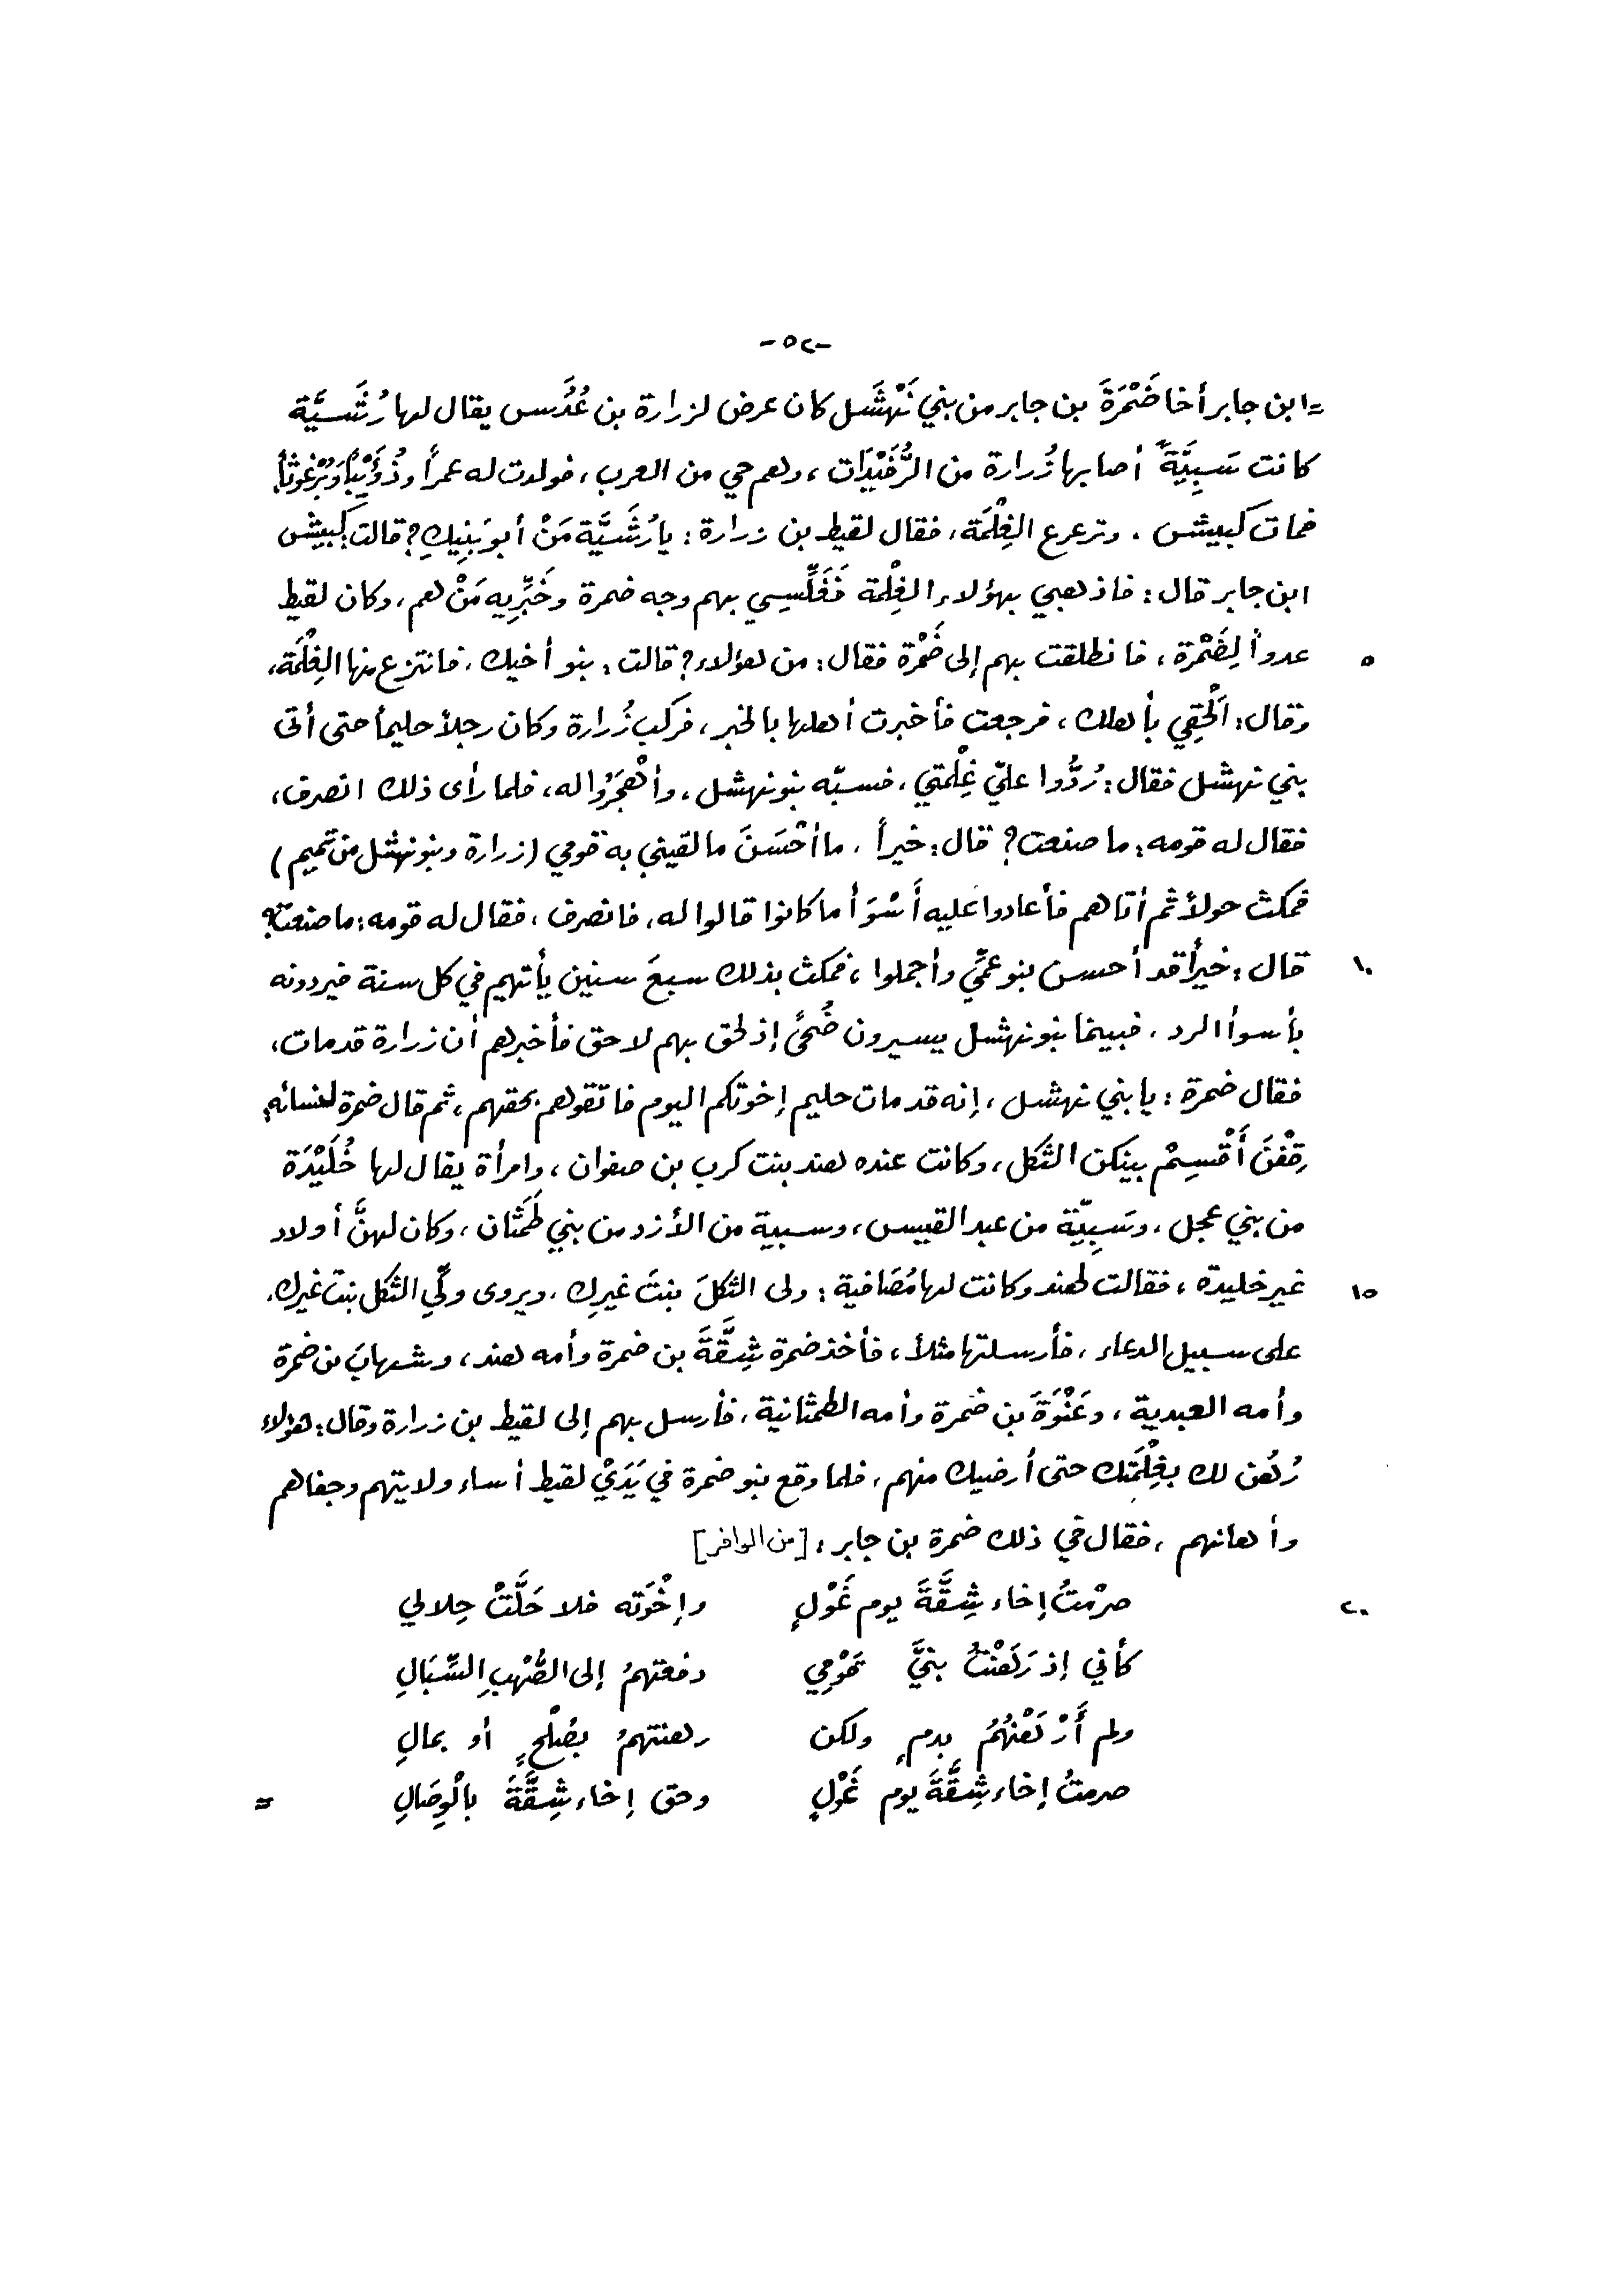 -٥٢-
= ابن جابر أخا ضَمْرَةَ بن جابر من بني نَهْشَل كان عرض لزرارة بن عُدُس يقال لها رُشَيَّة
كانت سَبِيَّةً أصابها زُرارة من الرُّفَيْدَات، وهم حي من العرب، فولدت له عمراً وذُؤَيْباً وَبُرْغُوثاً.
فمات كبيش. وترعرع الغِلْمَة، فقال لقيط بن زرارة: يا رُشَيَّة مَنْ أبو بَنِيكِ؟ قالت: كبيش
ابن جابر قال: فاذهبي بهؤلاء الغِلْمة فَغَلِّسِي بهم وجه ضمرة وخَبِّرِيه مَنْ هم، وكان لقيط
عدواً لِضَمْرة، فانطلقت بهم إلى ضَمْرة فقال: من هؤلاء؟ قالت: بنو أخيك، فانتزع منها الغِلْمَة،
٥
وقال: اَلْحَقِي بأهلك، فرجعت فأخبرت أهلها بالخبر، فركب زُرارة وكان رجلاً حليماً حتى أتى
بني نهشل فقال: رُدُّوا عليّ غِلْمتي، فسبّه بنو نهشل، وأهْجَرُوا له، فلما رأى ذلك انصرف،
فقال له قومه: ما صنعت؟ قال: خيراً، ما أحْسَنَ ما لقيني به قومي (زرارة وبنو نهشل من تميم)
فمكث حولاً ثم أتاهم فأعادوا عليه أَسْوَأ ما كانوا قالوا له، فانصرف، فقال له قومه: ما صنعت؟
قال: خيراً قد أحسن بنو عمِّي وأجملوا، فمكث بذلك سبعَ سنين يأتيهم في كل سنة فيردونه
١٠
بأسوأ الرد. فبينما بنو نهشل يسيرون ضُحًى إذ لحق بهم لاحق فأخبرهم أن زرارة قد مات،
فقال ضمرة: يا بني نهشل، إنه قد مات حليم إخوتكم اليوم فاتقوهم بحقهم، ثم قال ضمرة لنسائه:
قِفْنَ أَقْسِمْ بينكن الثكل، وكانت عنده هند بنت كرب بن صفوان، وامرأة يقال لها خُلَيْدَة
من بني عجل، وسَبِيّة من عبد القيس، وسبية من الأزد من بني طَمَثَان، وكان لهنَّ أولاد
غير خليدة، فقالت لهند وكانت لها مُصَافية: ولى الثكلَ بنتَ غيرِك، ويروى ولِّي الثكل بنت غيرك،
١٥
على سبيل الدعاء، فأرسلتها مثلاً، فأخذ ضمرة شِقَّةَ بن ضمرة وأمه هند، وشهابَ بن ضمرة
وأمه العبدية، وعَنْوَةَ بن ضمرة وأمه الطمثانية، فأرسل بهم إلى لقيط بن زرارة وقال: هؤلاء
رُهُن لك بغِلْمَتك حتى أرضيك منهم، فلما وقع بنو ضمرة في يَدَيْ لقيط أساء ولايتهم وجفاهم
وأهانهم، فقال في ذلك ضمرة بن جابر: [من الوافر]
صرمْتُ إخاء شِقَّةَ يوم غَوْلٍ وإخْوَته فلا حَلَّتْ حِلالي
٢٠
كأني إذ رَهَنْتُ بنيَّ قَوْمِي دفعتهمُ إلى الصُّهْبِ السِّبَالِ
ولم أَرْهَنْهُمُ بدمٍ ولكن رهنتهمُ بصُلْحٍ أو بمالِ
صرمتُ إخاء شِقَّةَ يوم غَوْلٍ وحق إخاء شِقَّةَ بالْوِصَالِ =